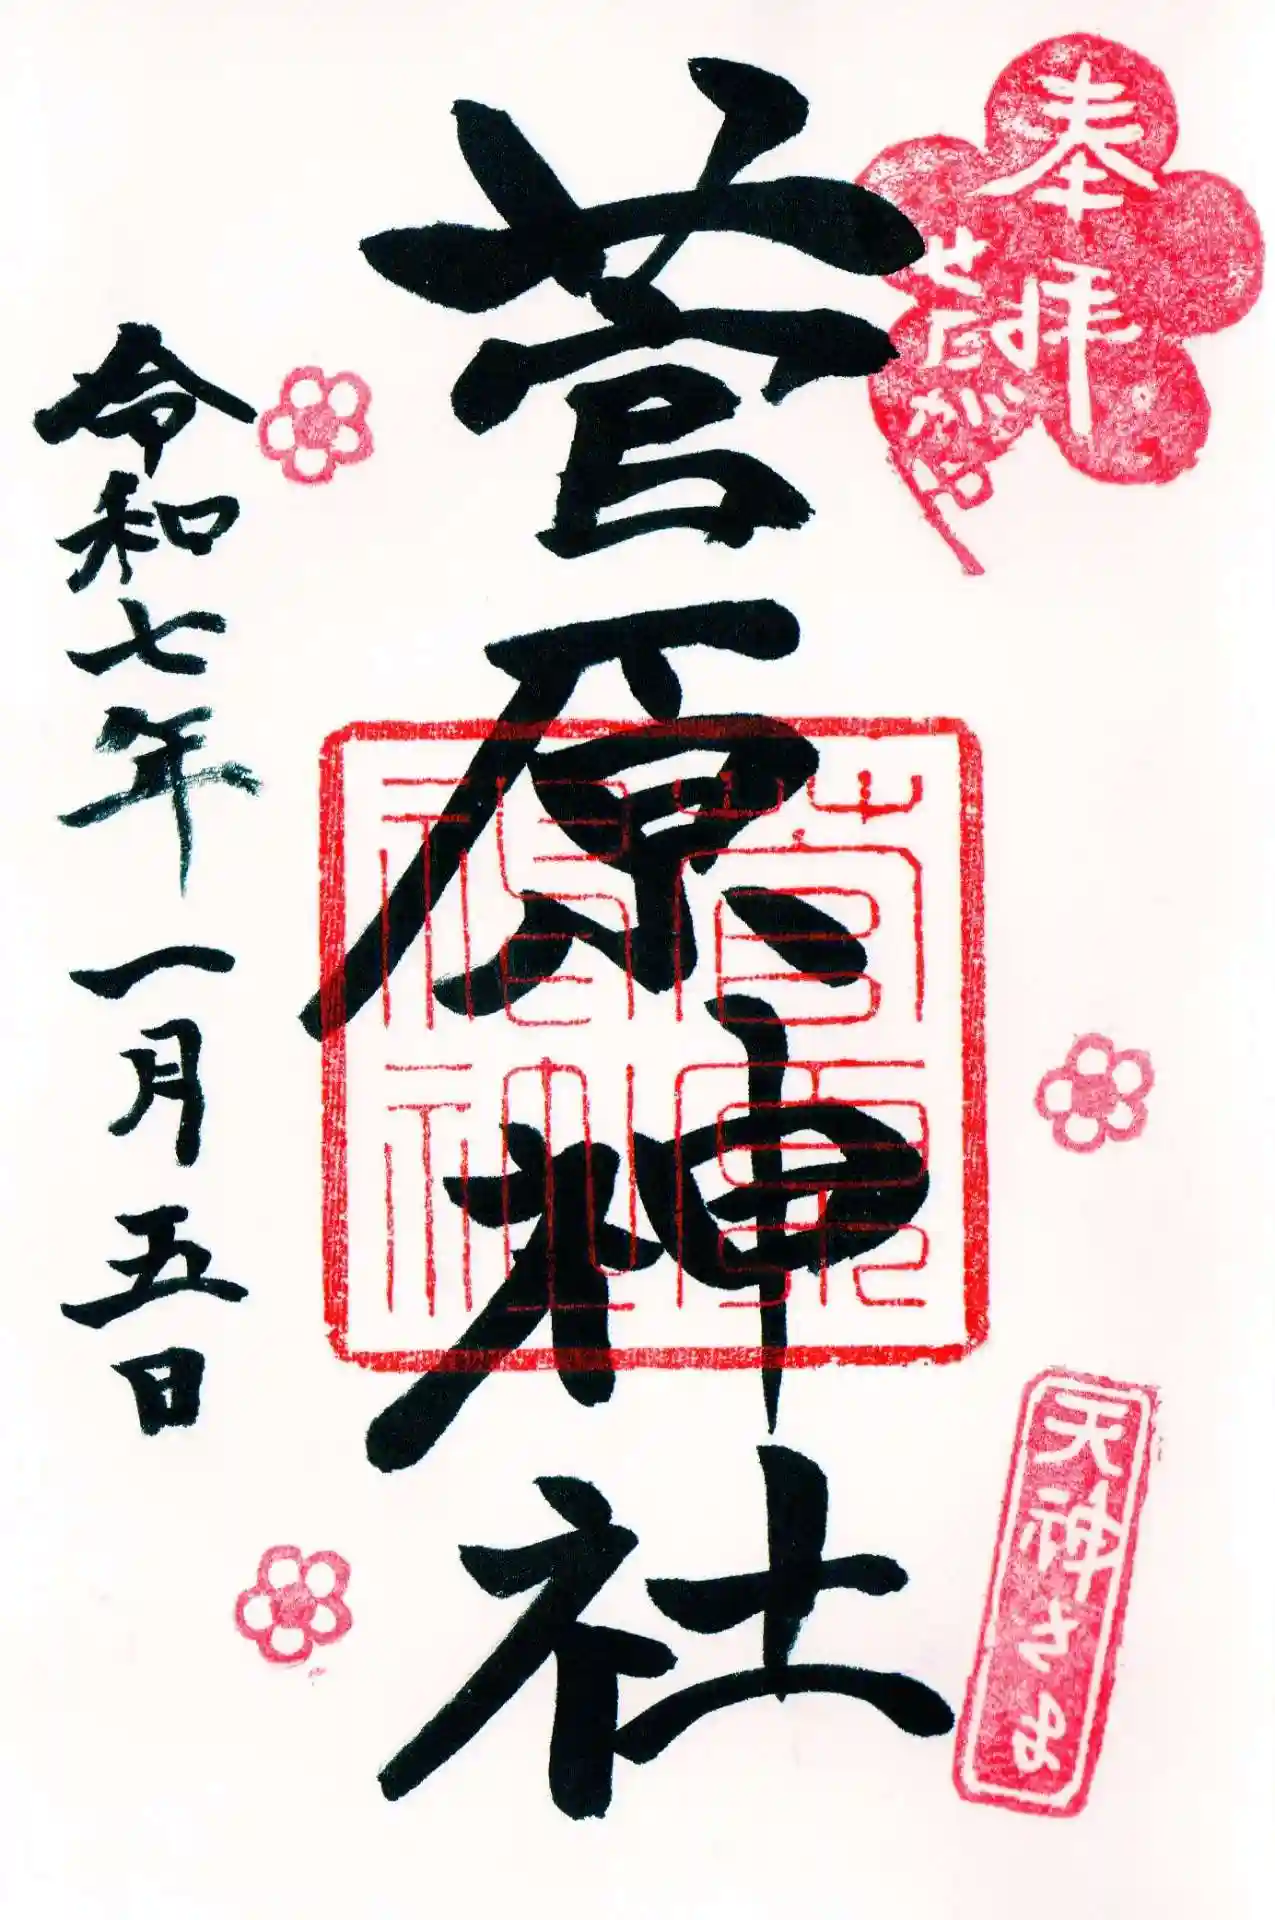 奉拝
せたがや
菅原神社
菅原神社
令和七年一月五日
天神さま